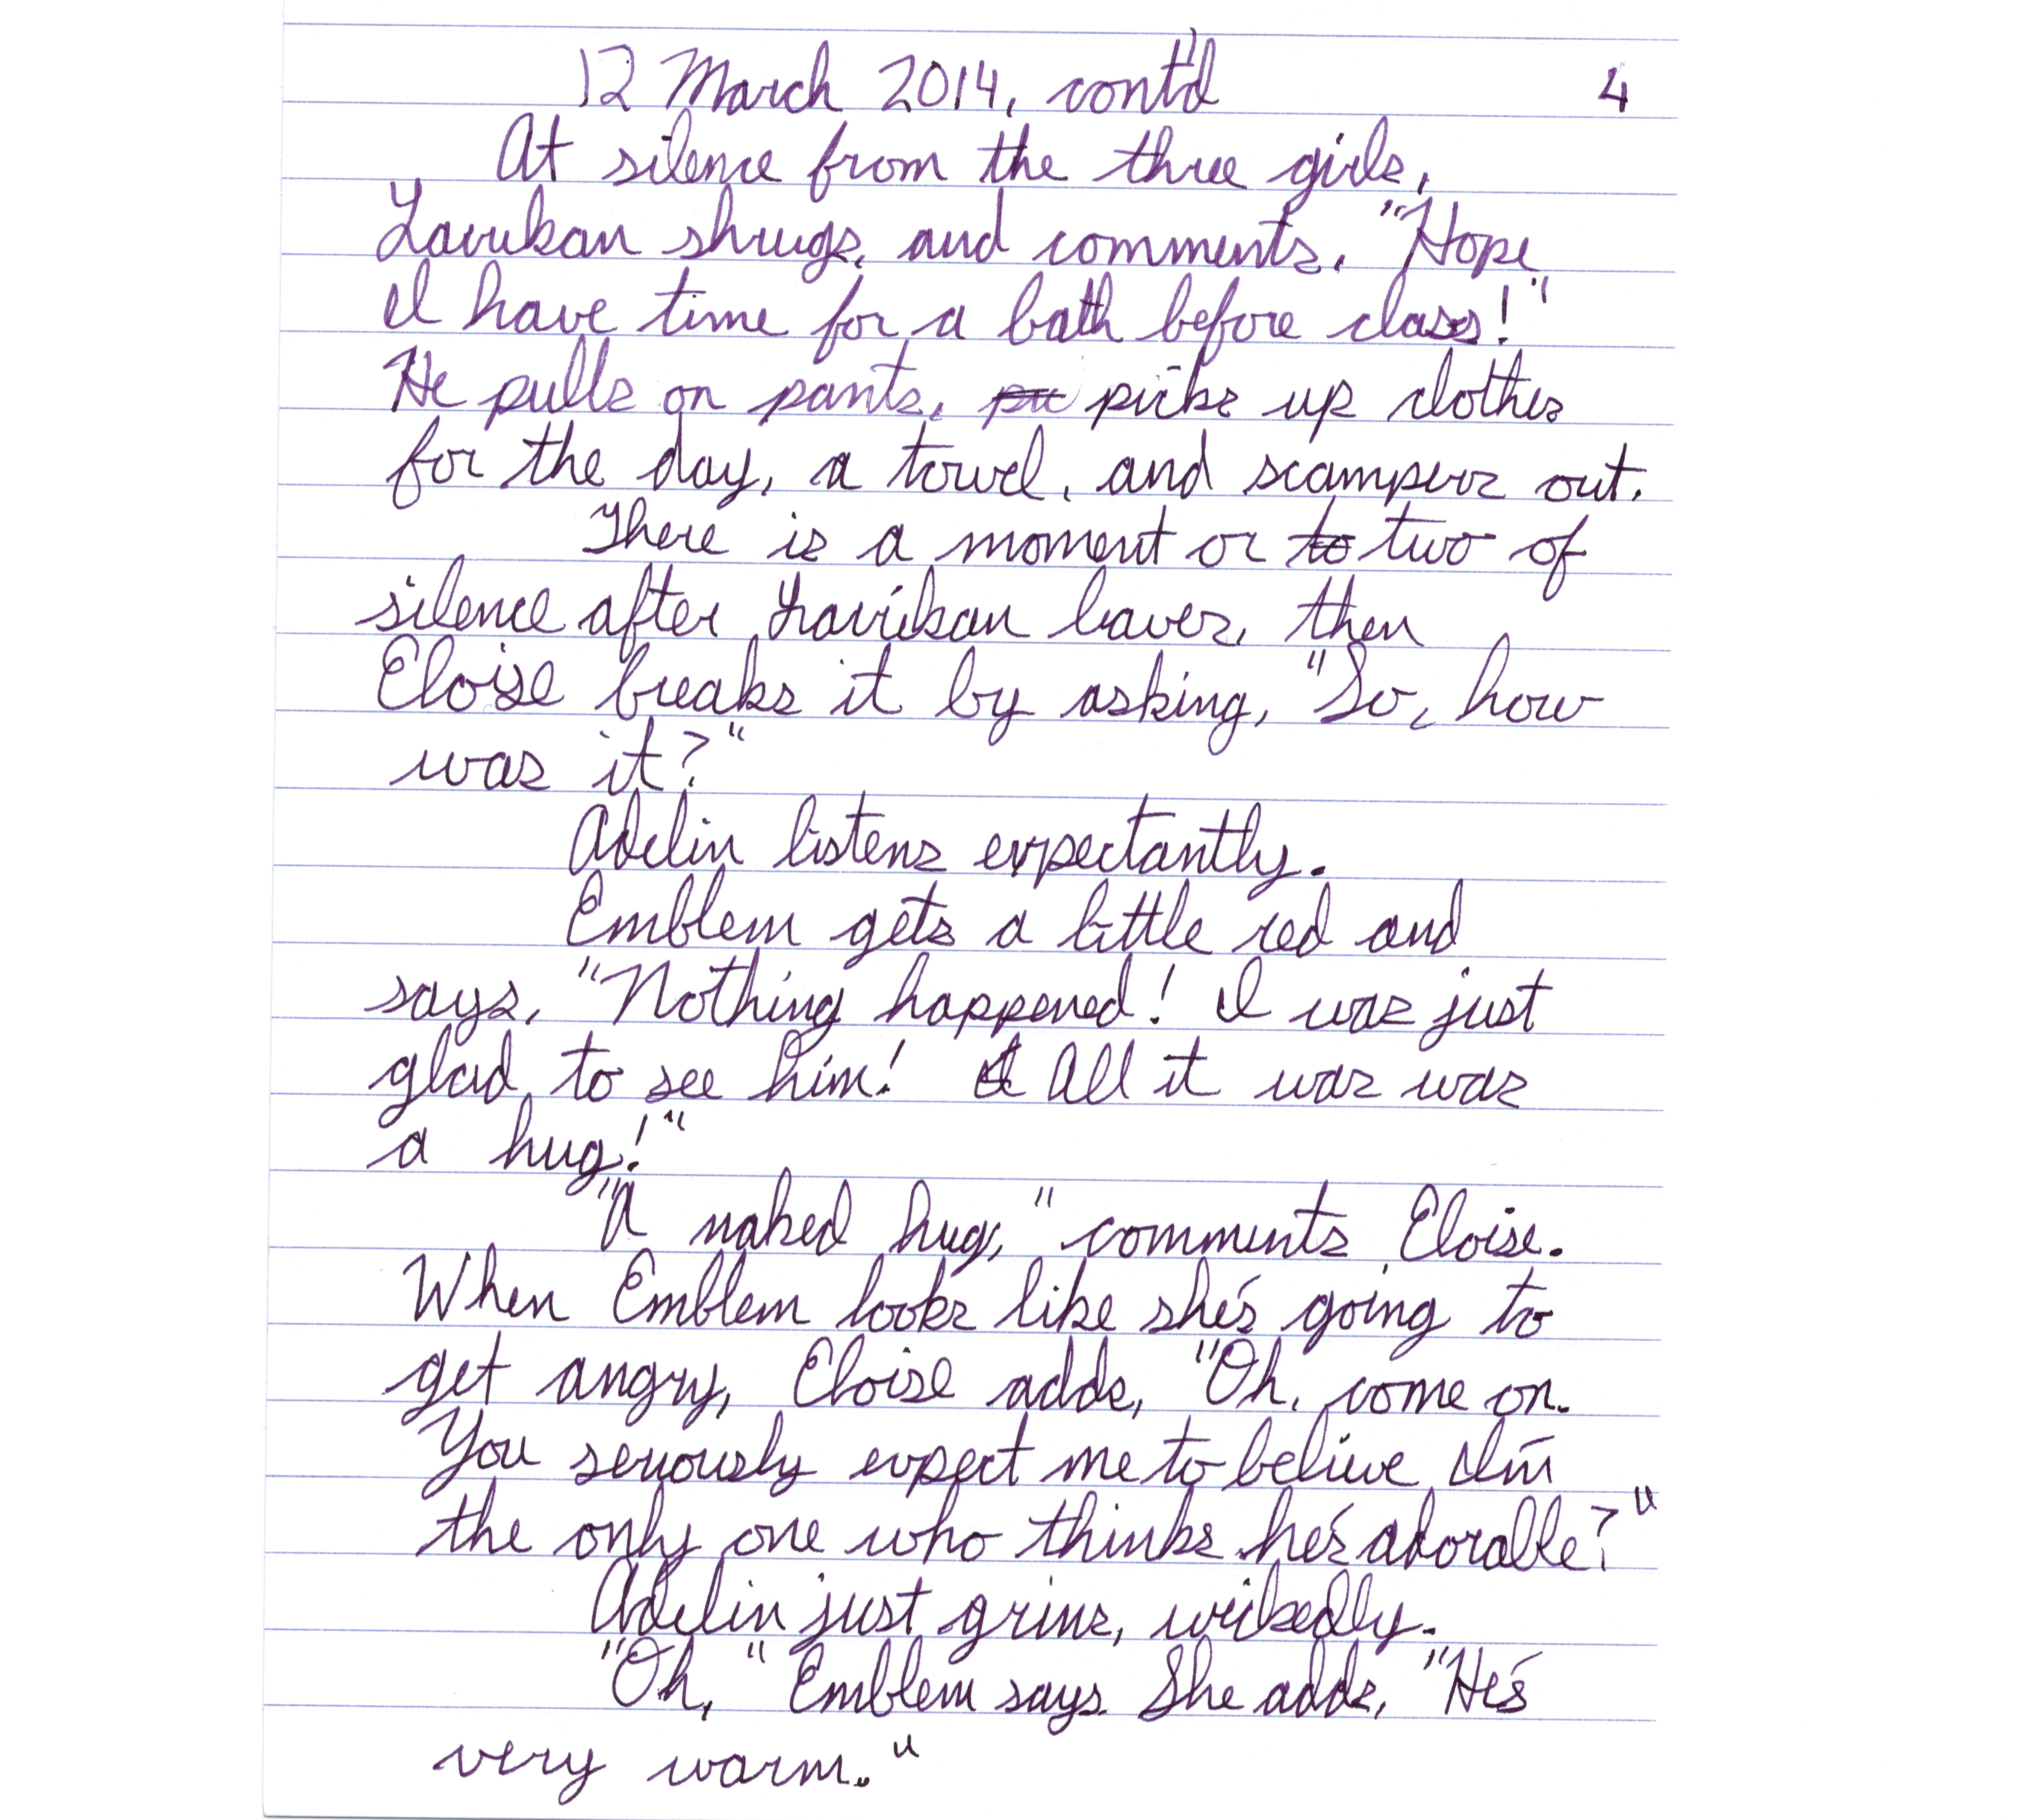 12 March 2014, cont'd 4
At silence from the three girls,
Lavukan shrugs, and comments, "Hope
I have time for a bath before class!"
He pulls on pants, pu picks up clothes
for the day, a towel, and scampers out.
There is a moment or to two of
silence after Lavukan leaves, then
Eloise breaks it by asking, "So, how
was it?"
Adelin listens expectantly.
Emblem gets a little red and
says, "Nothing happened! I was just
glad to see him! All it was was
a hug!"
"A naked hug," comments Eloise.
When Emblem looks like she's going to
get angry, Eloise adds, "Oh, come on.
You seriously expect me to believe I'm
the only one who thinks he's adorable?"
Adelin just grins, wickedly.
"Oh," Emblem says. She adds, "He's
very warm."